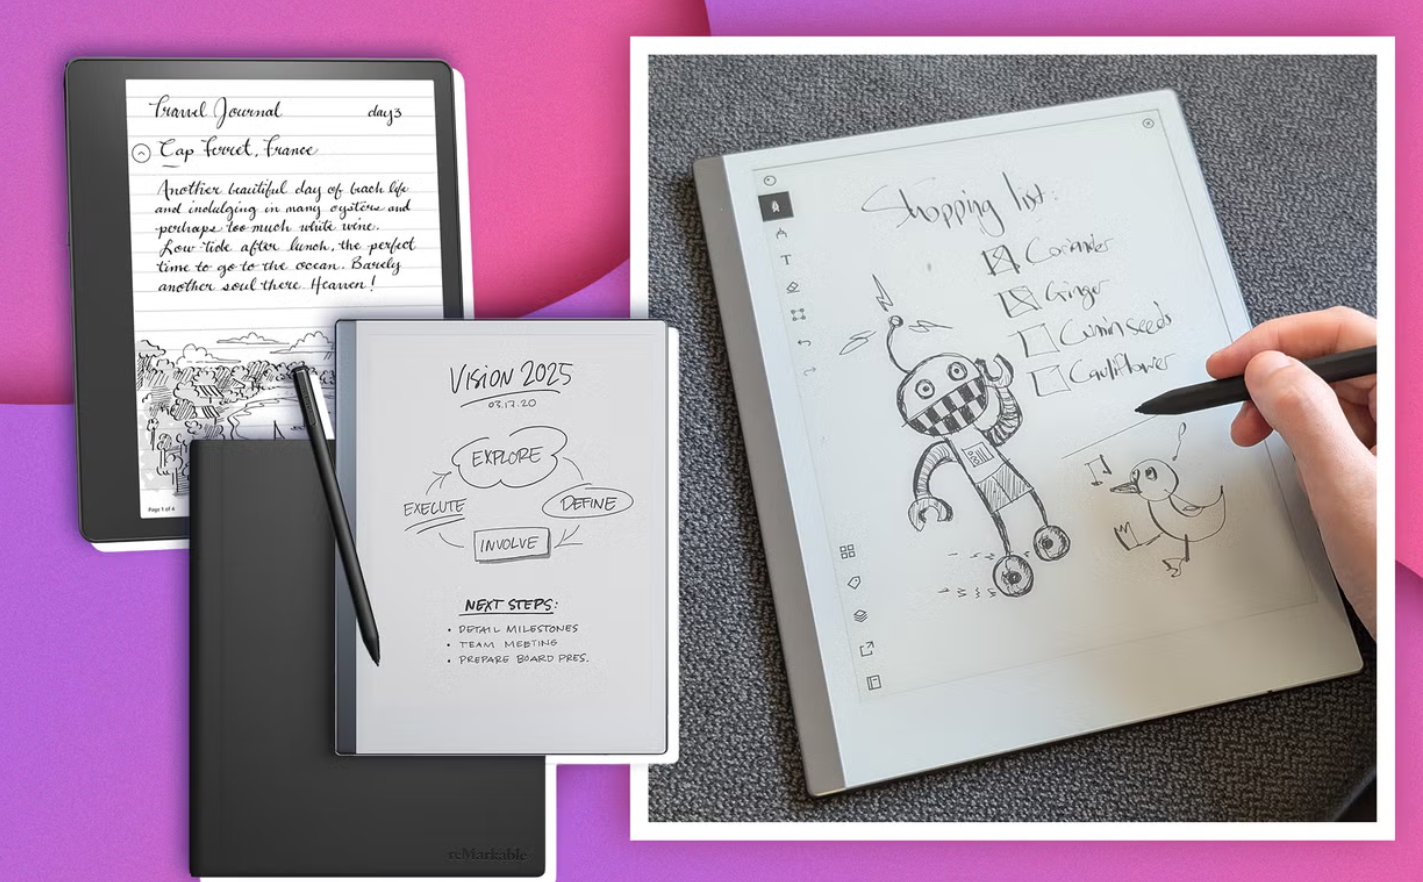 Travel Journal day 3
Cap Ferret, France
Another beautiful day of beach life
and indulging in many oysters and
perhaps too much white wine.
Low tide after lunch, the perfect
time to go to the ocean. Barely
another soul there. Heaven!
Page 1 of 6
Vision 2025
03.17.20
EXPLORE
EXECUTE
DEFINE
INVOLVE
NEXT STEPS:
• DETAIL MILESTONES
• TEAM MEETING
• PREPARE BOARD PRES.
reMarkable
Shopping list:
Coriander
Ginger
Cumin seeds
Cauliflower
T